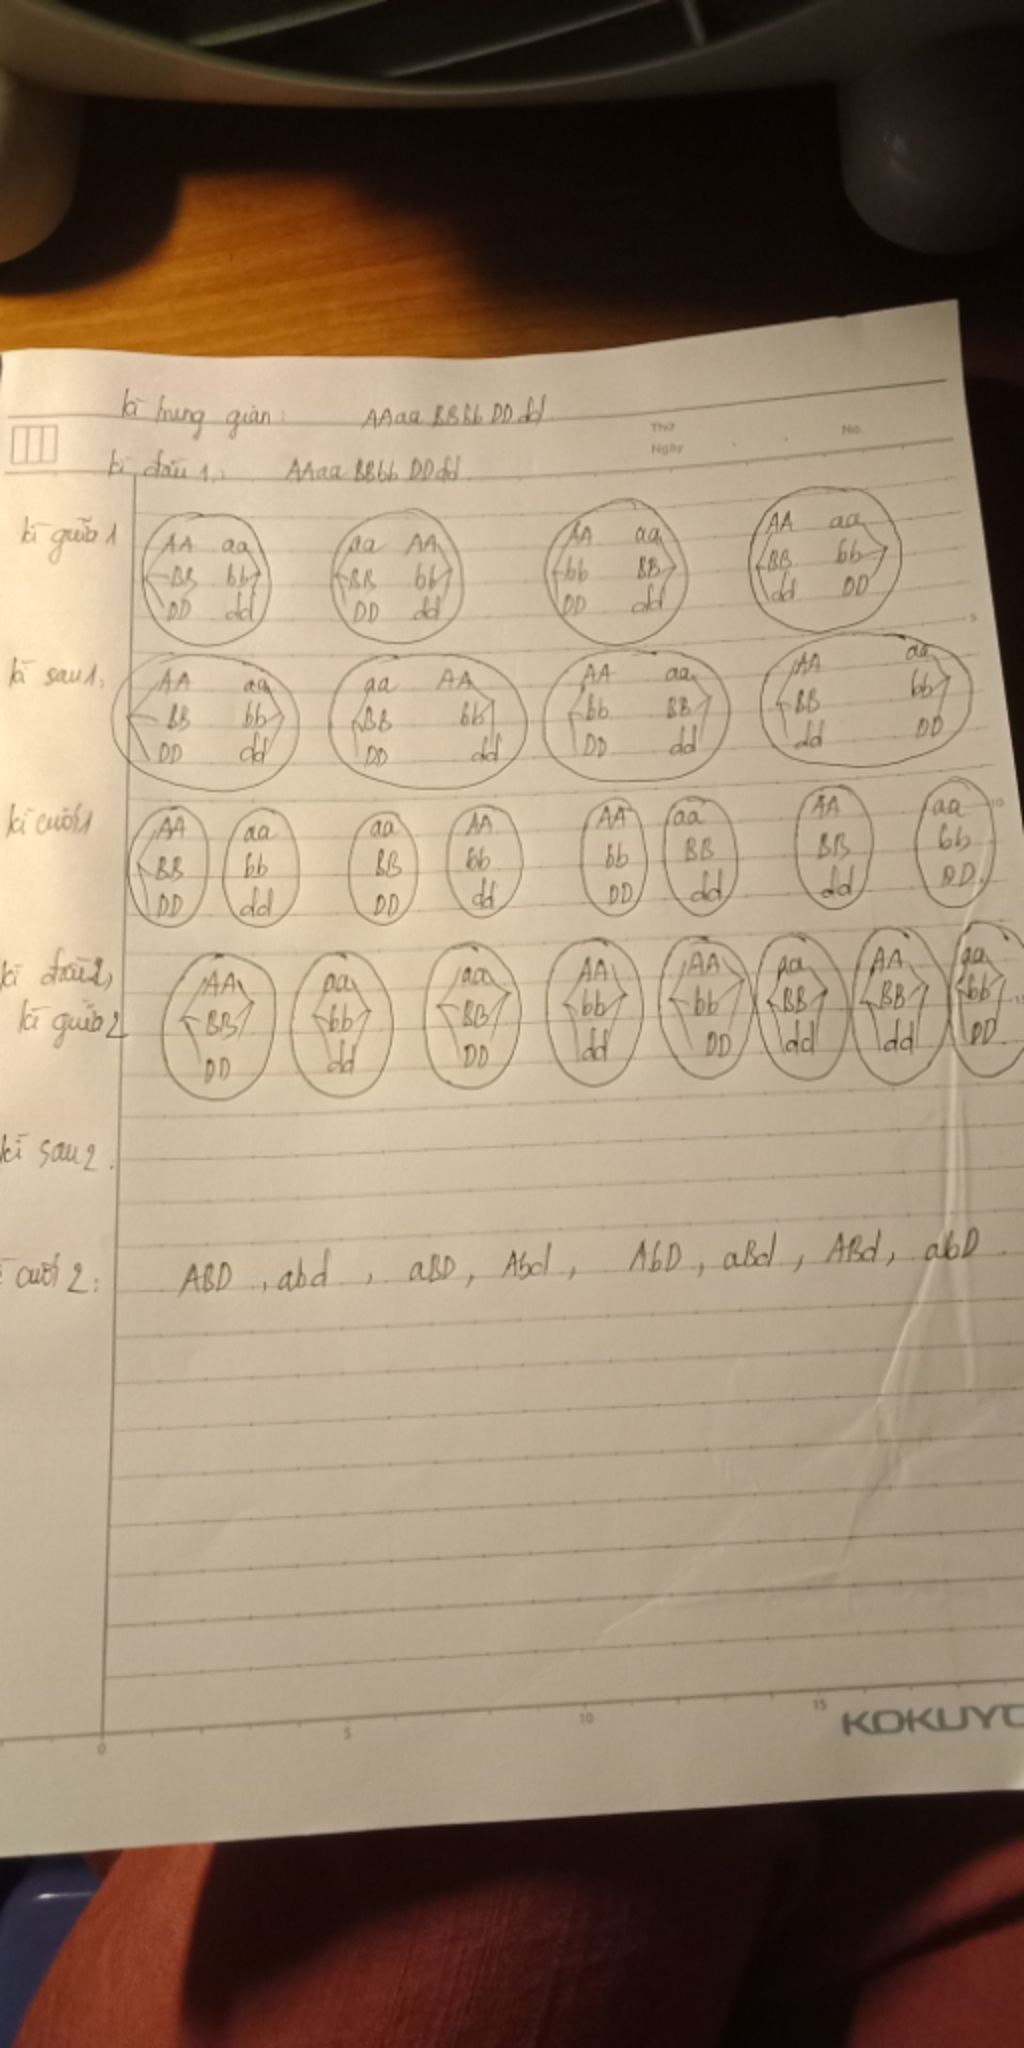 kì trung gian: AAaa BBbb DD dd
Thứ
Ngày
No.
kì đầu 1: AAaa BBbb DDdd
kì giữa 1
AA aa aa AA AA aa AA aa
BB bb BB bb bb BB BB bb
DD dd DD dd DD dd dd DD
5
kì sau 1:
AA aa aa AA AA aa AA aa
BB bb BB bb bb BB BB bb
DD dd DD dd DD dd dd DD
kì cuối 1
AA aa aa AA AA aa AA aa
BB bb BB bb bb BB BB bb
DD dd DD dd DD dd dd DD
10
kì đầu 2,
kì giữa 2
AA aa aa AA AA aa AA aa
BB bb BB bb bb BB BB bb
DD dd DD dd DD dd dd DD
15
kì sau 2.
cuối 2: ABD, abd, aBD, Abd, AbD, aBd, ABd, abD
0 5 10 15
KOKUYO